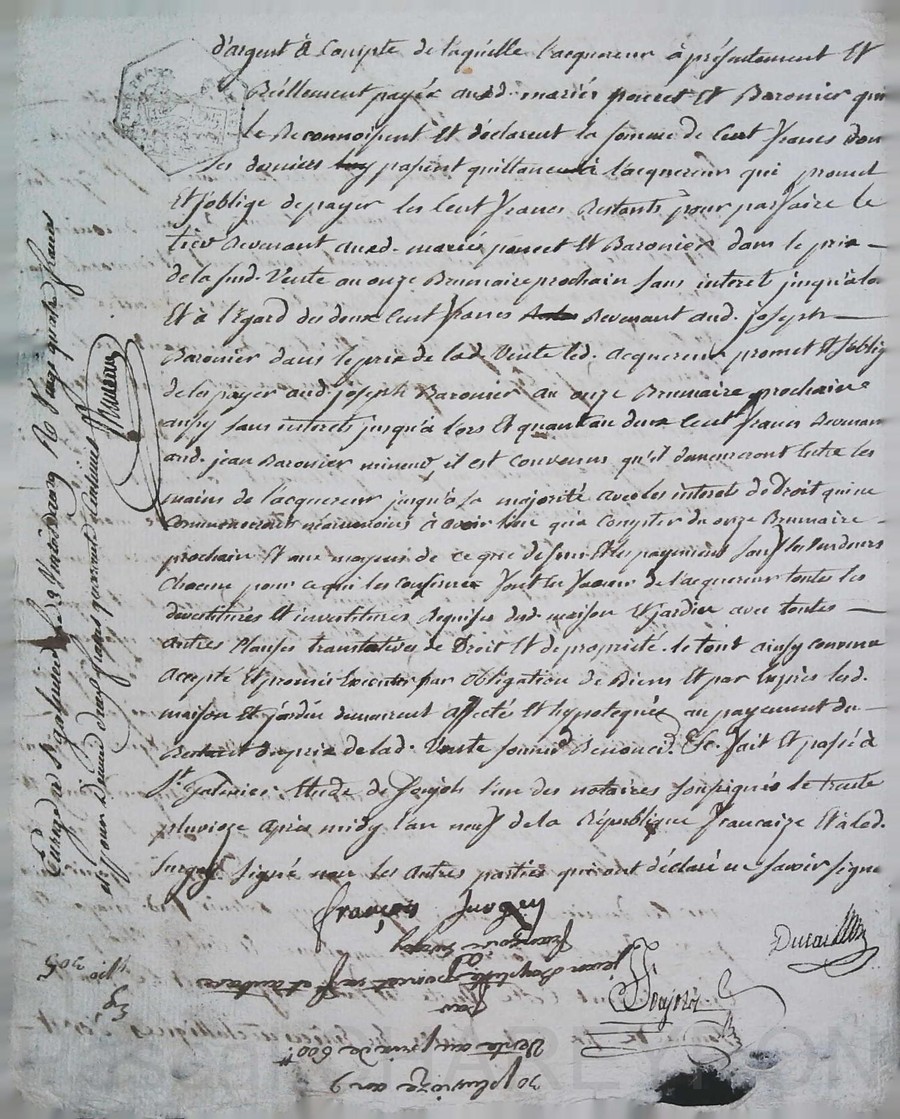 d'argent à Compte de laquelle l'acquereur à présentement Et
Réellement payée aud. mariés poncet Et Baronier qui
le Reconnoissent Et déclarent la somme de Cent francs don
ses derniers passent quittance à l'acquereur qui promet
Et s'oblige de payer les Cent francs Restants pour parfaire le
tier Revenant aud. mariés poncet Et Baronier dans le prix
de la sud. Vente au onze Brumaire prochain sans interet jusqu'alo
Et à l'égard des deux Cent francs Revenant aud. joseph
Baronier dans le prix de lad. Vente led. acquereur promet Et s'oblig
de les payer aud. joseph Baronier au onze Brumaire prochain
aussy sans interet jusqu'à lors Et quant au deux Cent francs Revenan
aud. jean Baronier mineur, il est convenus qu'il demeureront Entre les
mains de l'acquereur jusqu'à sa majorité avec les interets de Droit qui ne
Commenceront néanmoins à avoir lieu qu'a compter du onze Brumaire
prochain Et aux moyens de ce que dessus Et les payement fait les Vendeurs
Chacun pour ce qui les Concerne font en faveur de l'acquereur toutes les
devestitures Et investitures Requises dud. maison Et jardin avec toutes
autres Clauses translatives de Droit Et de propriété. le tout ainsy convenu
accepté Et promis Executer par obligation de Biens Et par Exprès lad.
maison Et jardin demeurent affectés Et hypotequés au payement du
Restant du prix de lad. Vente Renoncé. &c. fait Et passé à
St. Galmier Etude de Joujols l'un des notaires soussignés le trente
pluvioze après midy l'an neuf de la République francaize Et a led.
Surgey signé non les autres parties qui ont déclaré ne savoir signe
françois Surgey
Ducarillin
Joujols
30 pluvioze an 9
Vente au prix de 600#
par
jean Baptiste poncet et autres
a
françois Surgey
Enregé a St galmier le 3 Ventose an 9 R Vingt quatre francs
et pour Deux francs quarante Centimes